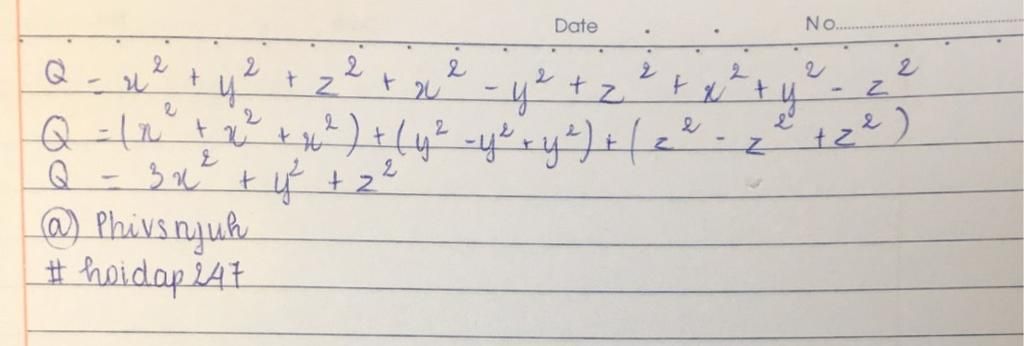 Date . . No..............................
Q = x² + y² + z² + x² - y² + z² + x² + y² - z²
Q = (x² + x² + x²) + (y² - y² + y²) + (z² - z² + z²)
Q = 3x² + y² + z²
@ Phivsnjuh
# hoidap247